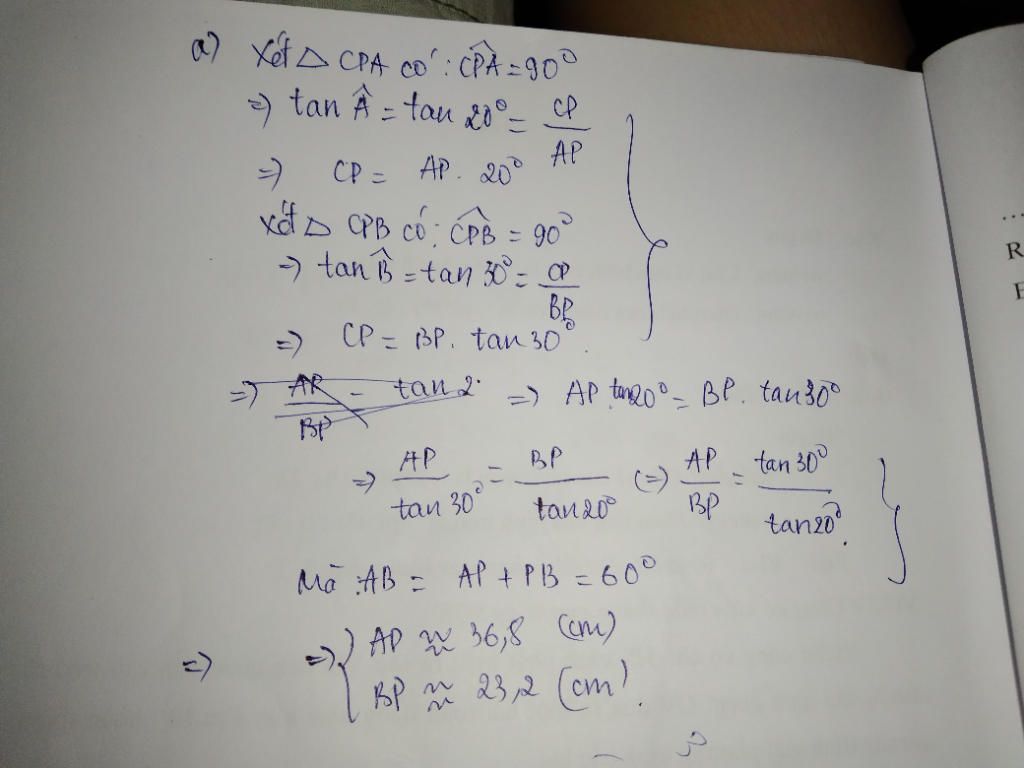 a) Xét △ CPA có : CPA = 90°
=) tan Â = tan 20° = CP/AP
=) CP = AP. 20°
Xét △ CPB có : CPB = 90°
=) tan B̂ = tan 30° = CP/BP
=) CP = BP. tan 30°.
=) AP/BP = tan 2 =) AP. tan20° = BP. tan30°
=) AP/tan 30° = BP/tan 20° (=) AP/BP = tan 30°/tan 20°.
Mà : AB = AP + PB = 60°
=) =) { AP ≈ 36,8 (cm)
BP ≈ 23,2 (cm).
...
R
E